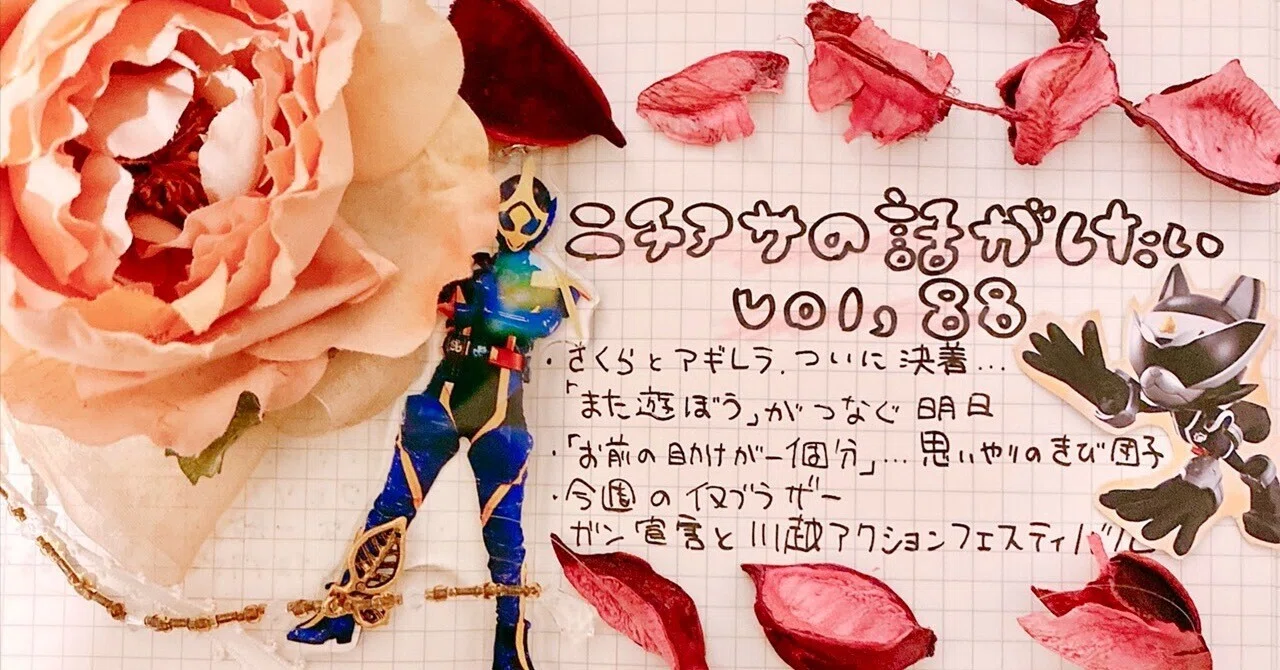 ニチアサの話がしたい
vol,88
・さくらとアギレラ.ついに決着…
「また遊ぼう」がつなぐ明日
・「お前の目かけが一個分」…思いやりのきび団子
・今週の仅ブラザー
ガン宣言と川越アクションフェスティバル